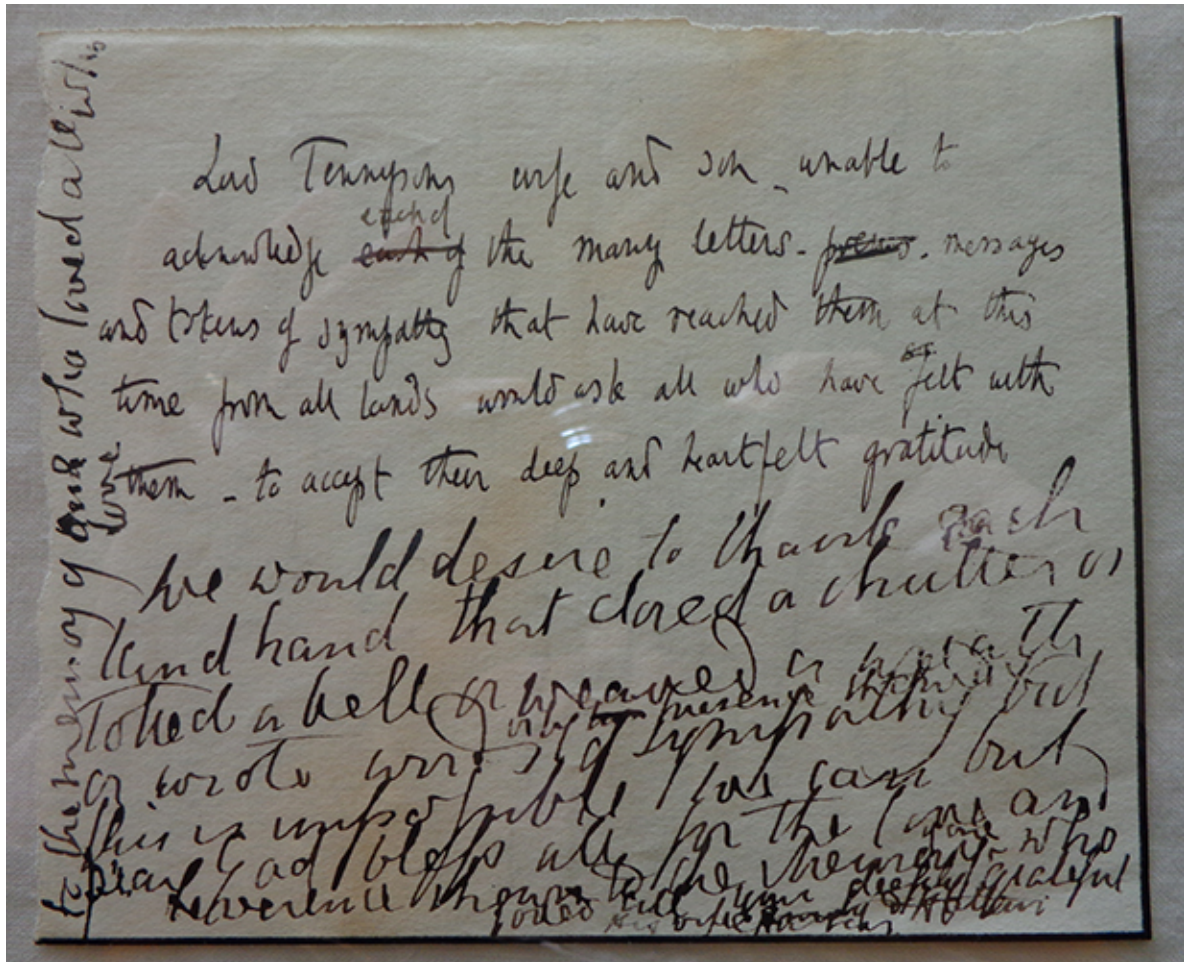 Lord Tennysons wife and son - unable to
each of
acknowledge each of the many letters - messages
and tokens of sympathy that have reached them at this
time from all lands would ask all who have felt with
them - to accept their deep and heartfelt gratitude
We would desire to thank each
kind hand that closed a shutter or
Tolled a bell or weaved a wreath
or by presence
or wrote word of sympathy but
this is impossible we can but
pray God bless all for the love and
reverence shewn to the memory who
loved all deeply grateful
his wife Hallam
to the memory of one who loved all in his